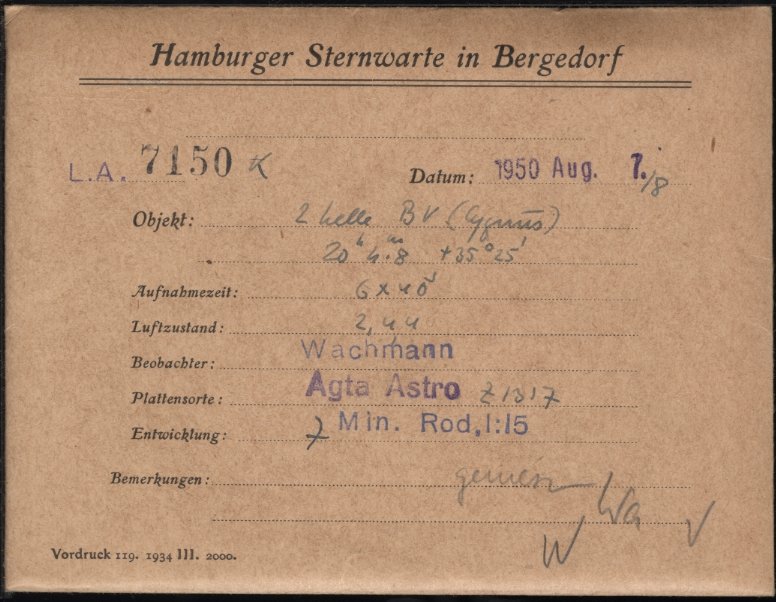 Hamburger Sternwarte in Bergedorf
L.A. 7150 K Datum: 1950 Aug. 7./8
Objekt: 2 helle BV (Cygnus)
20ʰ 4.ᵐ8 +35°25'
Aufnahmezeit: 6 x 40'
Luftzustand: 2,44
Beobachter: Wachmann
Plattensorte: Agfa Astro Z1317
Entwicklung: 7 Min. Rod,1:15
Bemerkungen: gemessen Wa
W
Vordruck 119. 1934 III. 2000.